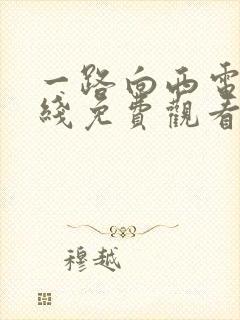 一路向西電
綫免費觀看
穆越